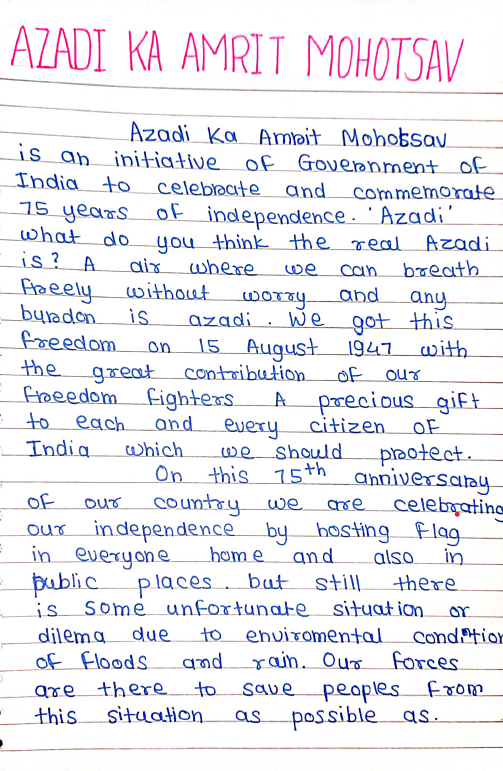 AZADI KA AMRIT MOHOTSAV
Azadi Ka Amrit Mohotsav
is an initiative of Government of
India to celebrate and commemorate
75 years of independence. 'Azadi'
what do you think the real Azadi
is? A air where we can breath
freely without worry and any
burdon is azadi. We got this
freedom on 15 August 1947 with
the great contribution of our
freedom fighters A precious gift
to each and every citizen of
India which we should protect.
On this 75th anniversary
of our country we are celebrating
our independence by hosting flag
in everyone home and also in
public places. but still there
is some unfortunate situation or
dilema due to enviromental condition
of floods and rain. Our forces
are there to save peoples from
this situation as possible as.